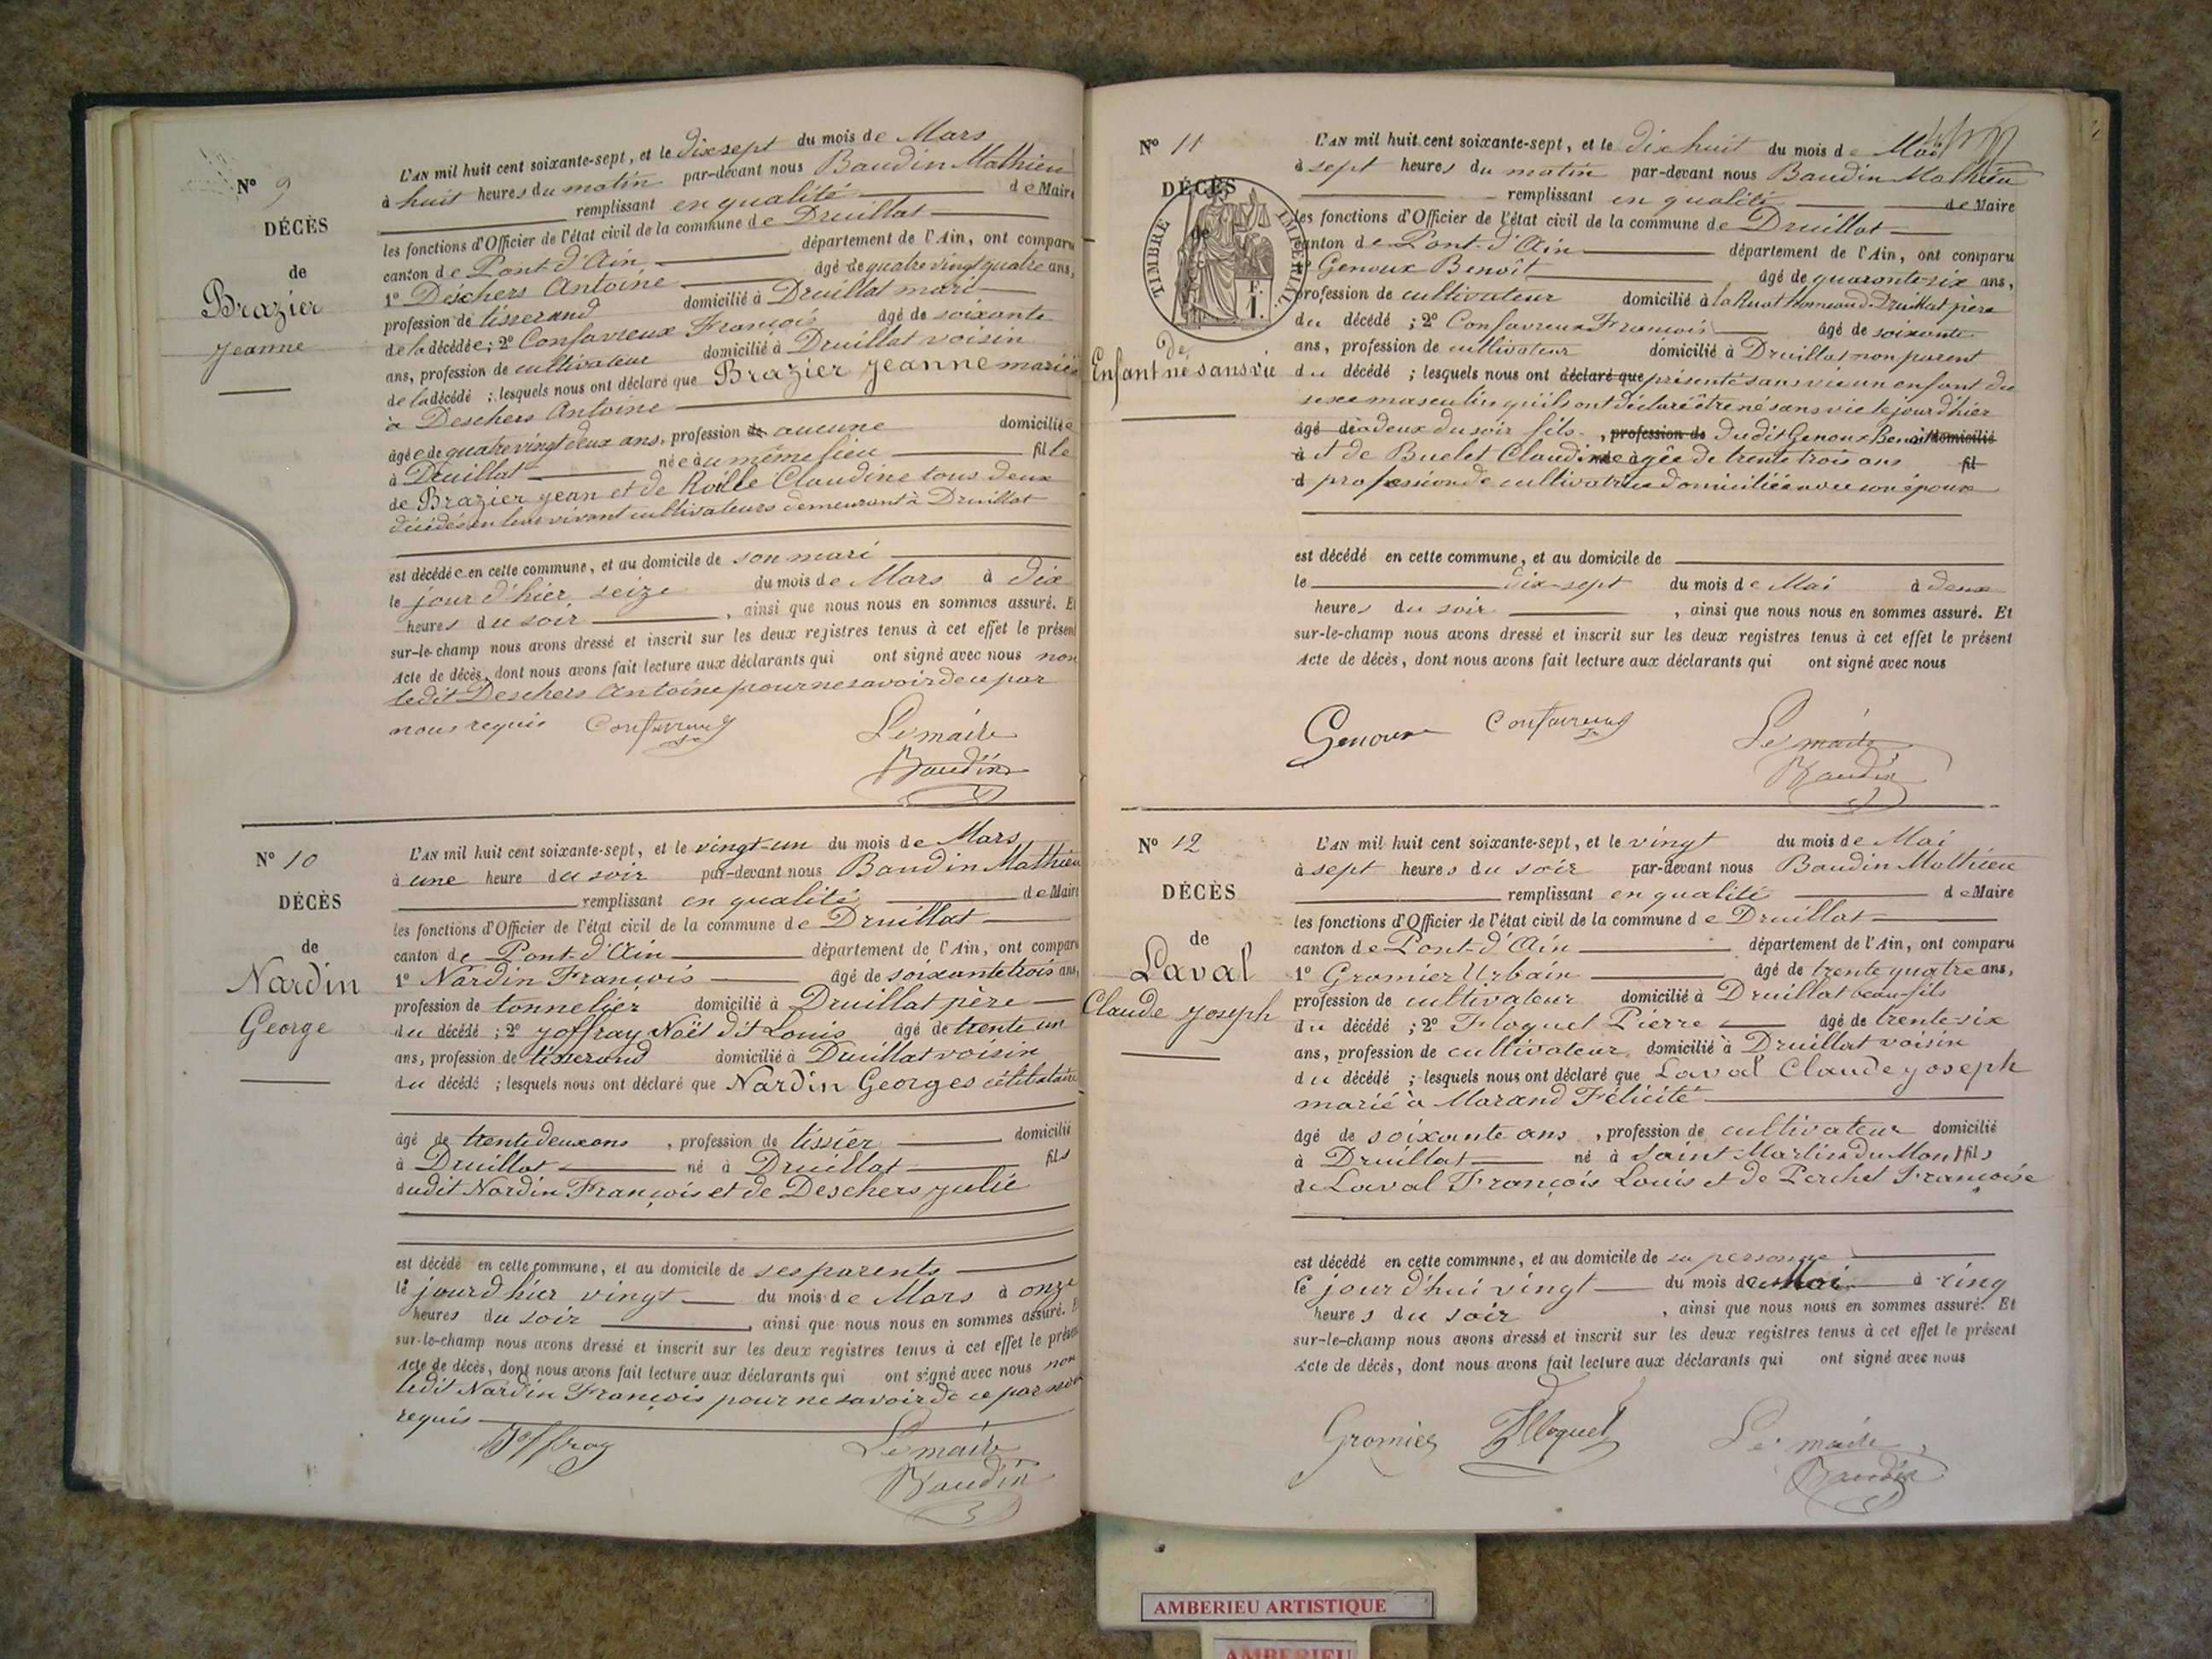 N° 9
DÉCÈS
de
Brazier
Jeanne
L'AN mil huit cent soixante-sept, et le dix sept du mois de Mars
à huit heures du matin par-devant nous Baudin Mathieu
remplissant en qualité de Maire
les fonctions d'Officier de l'état civil de la commune de Druillat
canton de Pont-d'Ain département de l'Ain, ont comparu
1° Deschers Antoine âgé de quatre vingt quatre ans,
profession de tisserand domicilié à Druillat mari
de la décédée; 2° Confavreux François âgé de soixante
ans, profession de cultivateur domicilié à Druillat voisin
de la décédé ; lesquels nous ont déclaré que Brazier Jeanne mariée
à Deschers Antoine
âgée de quatre vingt deux ans, profession de aucune domiciliée
à Druillat née au même lieu fille
de Brazier Jean et de Roille Claudine tous deux
décédés en leur vivant cultivateurs demeurant à Druillat
est décédée en cette commune, et au domicile de son mari
le jour d'hier seize du mois de Mars à dix
heures du soir , ainsi que nous nous en sommes assuré. Et
sur-le-champ nous avons dressé et inscrit sur les deux registres tenus à cet effet le présent
Acte de décès, dont nous avons fait lecture aux déclarants qui ont signé avec nous non
ledit Deschers Antoine pour ne savoir de ce par
nous requis Confavreux Le maire
Baudin
N° 10
DÉCÈS
de
Nardin
George
L'AN mil huit cent soixante-sept, et le vingt-un du mois de Mars
à une heure du soir par-devant nous Baudin Mathieu
remplissant en qualité de Maire
les fonctions d'Officier de l'état civil de la commune de Druillat
canton de Pont-d'Ain département de l'Ain, ont comparu
1° Nardin François âgé de soixante trois ans,
profession de tonnelier domicilié à Druillat père
du décédé ; 2° Joffray Noël dit Louis âgé de trente un
ans, profession de tisserand domicilié à Druillat voisin
du décédé ; lesquels nous ont déclaré que Nardin Georges célibataire
âgé de trente deux ans , profession de tissier domicilié
à Druillat né à Druillat fils
dudit Nardin François et de Deschers Julie
est décédé en cette commune, et au domicile de ses parents
le jour d'hier vingt du mois de Mars à onze
heures du soir , ainsi que nous nous en sommes assuré. E
sur-le-champ nous avons dressé et inscrit sur les deux registres tenus à cet effet le présen
Acte de décès, dont nous avons fait lecture aux déclarants qui ont signé avec nous non
ledit Nardin François pour ne savoir de ce par nous
requis
Joffray Le maire
Baudin
N° 11
DÉCÈS
de
TIMBRE IMPÉRIAL
F.
1.
de
Enfant né sans vie
L'AN mil huit cent soixante-sept, et le dix huit du mois de Mai
à sept heures du matin par-devant nous Baudin Mathieu
remplissant en qualité de Maire
les fonctions d'Officier de l'état civil de la commune de Druillat
canton de Pont-d'Ain département de l'Ain, ont comparu
1° Genoux Benoît âgé de quarante-six ans,
profession de cultivateur domicilié à Druillat père
du décédé ; 2° Confavreux François âgé de soixante
ans, profession de cultivateur domicilié à Druillat non parent
du décédé ; lesquels nous ont déclaré que présenté sans vie un enfant du
sexe masculin qu'ils ont déclaré être né sans vie le jour d'hier
âgé de à deux du soir fils , profession de dudit Genoux Benoit domicilié
à et de Buelet Claudine âgée de trente trois ans fil
d profession de cultivatrice domiciliée avec son époux
est décédé en cette commune, et au domicile de
le dix-sept du mois de Mai à deux
heures du soir , ainsi que nous nous en sommes assuré. Et
sur-le-champ nous avons dressé et inscrit sur les deux registres tenus à cet effet le présent
Acte de décès, dont nous avons fait lecture aux déclarants qui ont signé avec nous
Genoux Confavreux Le maire
Baudin
N° 12
DÉCÈS
de
Laval
Claude Joseph
L'AN mil huit cent soixante-sept, et le vingt du mois de Mai
à sept heures du soir par-devant nous Baudin Mathieu
remplissant en qualité de Maire
les fonctions d'Officier de l'état civil de la commune de Druillat
canton de Pont-d'Ain département de l'Ain, ont comparu
1° Gromier Urbain âgé de trente quatre ans,
profession de cultivateur domicilié à Druillat beau fils
du décédé ; 2° Floquet Pierre âgé de trente-six
ans, profession de cultivateur domicilié à Druillat voisin
du décédé ; lesquels nous ont déclaré que Laval Claude Joseph
marié à Marand Félicité
âgé de soixante ans , profession de cultivateur domicilié
à Druillat né à Saint Martin du Mont fils
de Laval François Louis et de Perchet Françoise
est décédé en cette commune, et au domicile de sa personne
le jour d'hui vingt du mois de Mai à cinq
heures du soir , ainsi que nous nous en sommes assuré. Et
sur-le-champ nous avons dressé et inscrit sur les deux registres tenus à cet effet le présent
Acte de décès, dont nous avons fait lecture aux déclarants qui ont signé avec nous
Gromier Floquet Le maire
Baudin
AMBERIEU ARTISTIQUE
AMBERIEU